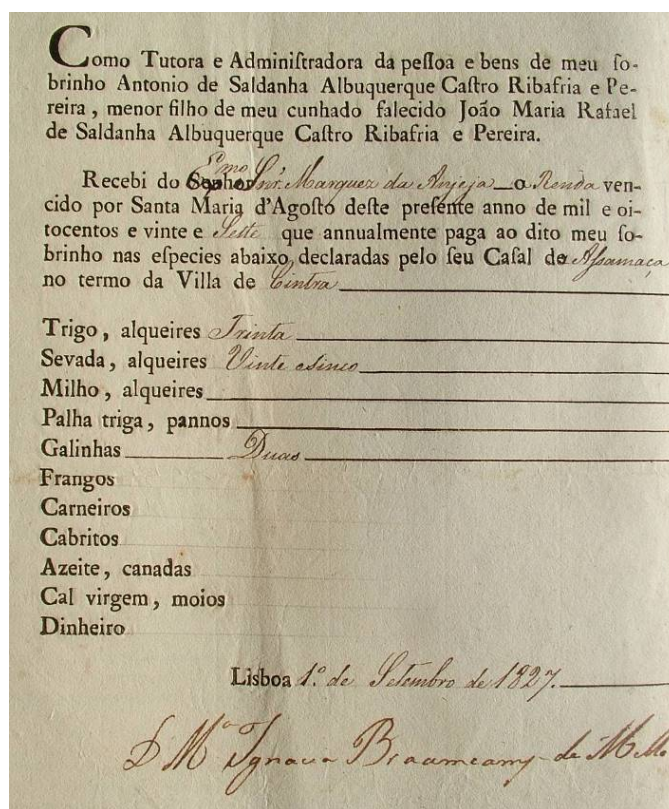 Como Tutora e Adminiſtradora da peſſoa e bens de meu ſo-
brinho Antonio de Saldanha Albuquerque Caſtro Ribafria e Pe-
reira, menor filho de meu cunhado falecido João Maria Rafael
de Saldanha Albuquerque Caſtro Ribafria e Pereira.
Recebi do Senhor Snr. Marquez da Anjeja a Renda ven-
cido por Santa Maria d'Agoſto deſte preſente anno de mil e oi-
tocentos e vinte e Sette que annualmente paga ao dito meu ſo-
brinho nas eſpecies abaixo declaradas pelo ſeu Caſal de Aſſamaça
no termo da Villa de Cintra
Trigo, alqueires Trinta
Sevada, alqueires Vinte e sinco
Milho, alqueires
Palha triga, pannos
Galinhas Duas
Frangos
Carneiros
Cabritos
Azeite, canadas
Cal virgem, moios
Dinheiro
Lisboa 1.º de Setembro de 1827.
D. M.ª Ignacia Braamcamp de Mello